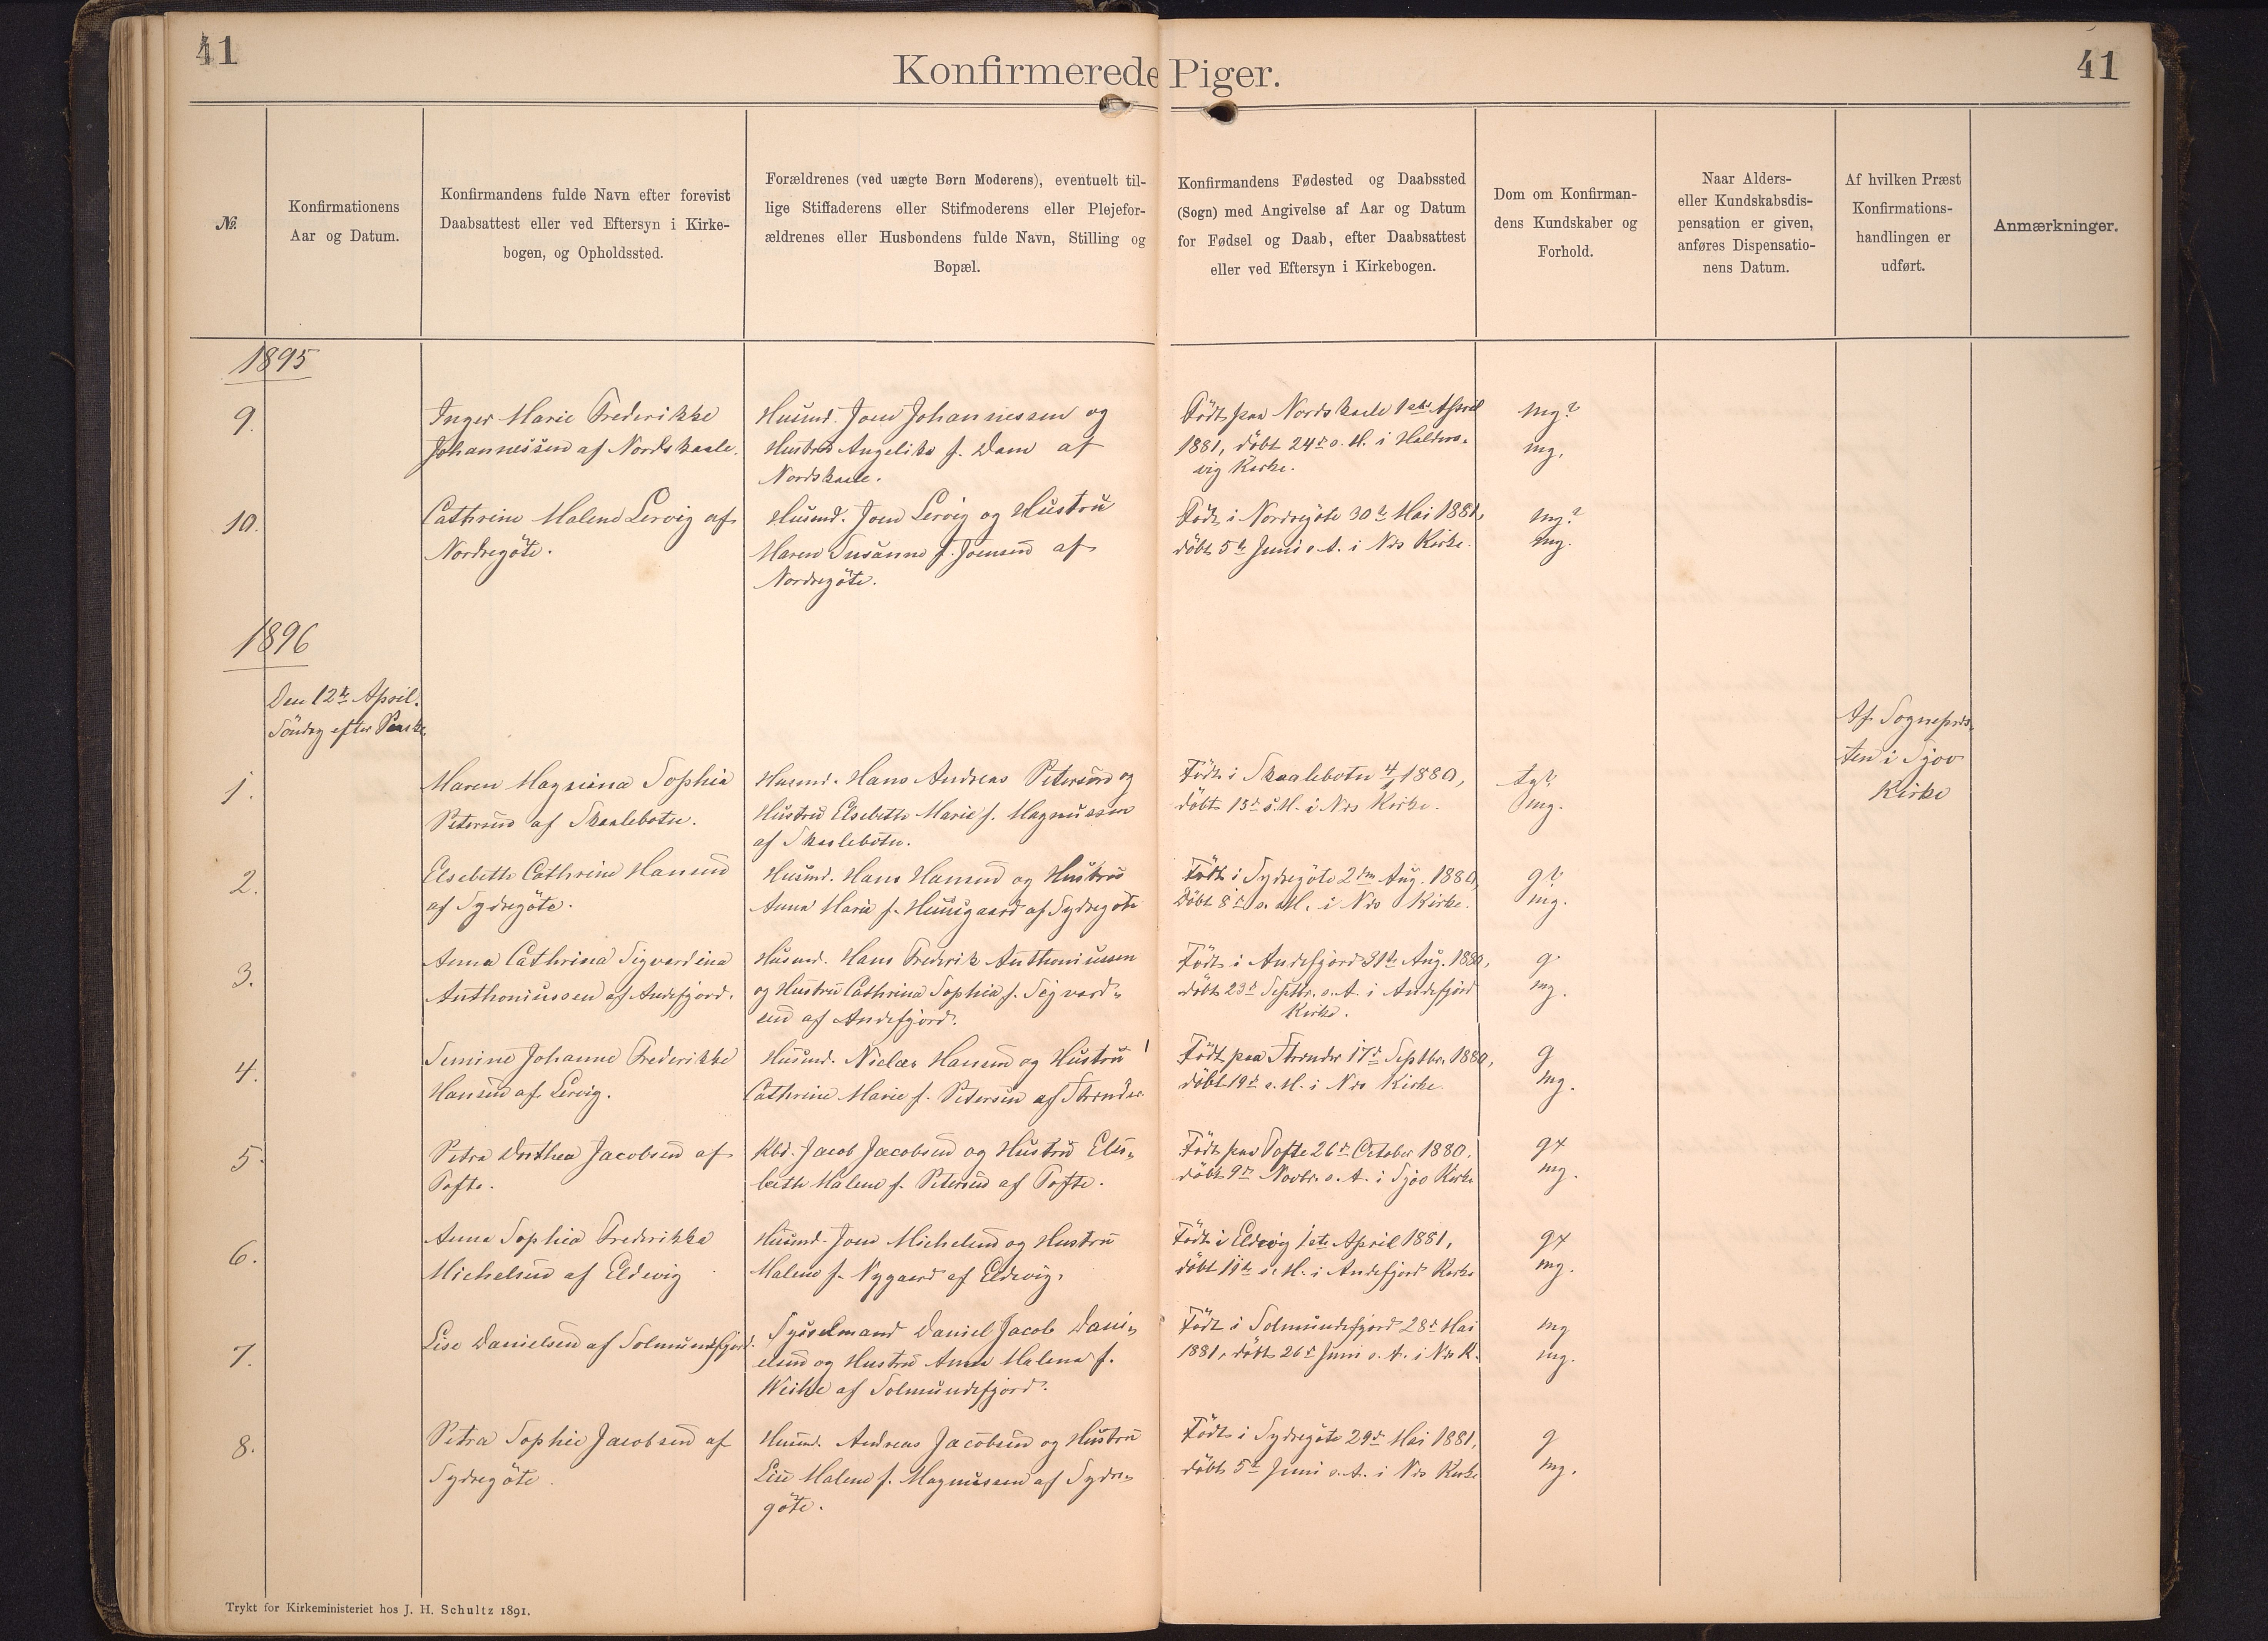 41
Konfirmerede Piger.
41
№
Konfirmationens
Aar og Datum.
Konfirmandens fulde Navn efter forevist
Daabsattest eller ved Eftersyn i Kirke-
bogen, og Opholdssted.
Forældrenes (ved uægte Børn Moderens), eventuelt til-
lige Stiffaderens eller Stifmoderens eller Plejefor-
ældrenes eller Husbondens fulde Navn, Stilling og
Bopæl.
Konfirmandens Fødested og Daabssted
(Sogn) med Angivelse af Aar og Datum
for Fødsel og Daab, efter Daabsattest
eller ved Eftersyn i Kirkebogen.
Dom om Konfirman-
dens Kundskaber og
Forhold.
Naar Alders-
eller Kundskabsdis-
pensation er given,
anføres Dispensatio-
nens Datum.
Af hvilken Præst
Konfirmations-
handlingen er
udført.
Anmærkninger.
1895
9.
Inger Marie Frederikke
Johannessen af Nordskaale.
Husmd. Joen Johannessen og
Hustru Angelika f. Dam af
Nordskaale.
Födt paa Nordskaale 1ste April
1881, döbt 24de s. M. i Halders-
vig Kirke.
mg?
mg.
10.
Cathrine Malene Lervig af
Nordregöte.
Husmd. Joen Lervig og Hustru
Maren Susanne f. Joensen af
Nordregöte.
Födt i Nordregöte 30te Mai 1881,
döbt 5te Juni s. A. i Nds Kirke.
mg?
mg.
1896
Den 12te April.
Söndag efter Paaske.
Af Sognepræs-
ten i Sjov
Kirke
1.
Maren Magniena Sophia
Petersen af Skaalebotn.
Husmd. Hans Andreas Petersen og
Hustru Elsebeth Marie f. Magnussen
af Skaalebotn.
Födt i Skaalebotn 4/ 1880,
döbt 15de s. M. i Nds Kirke.
tg?
mg.
2.
Elsebeth Cathrine Hansen
af Sydregöte.
Husmd. Hans Hansen og Hustru
Anna Marie f. Huusgaard af Sydregöte
Födt i Sydregöte 2den Aug. 1880,
Döbt 8de s. M. i Nds Kirke.
g?
mg.
3.
Anna Cathrina Sigvardina
Anthoniussen af Andefjord.
Husmd. Hans Frederik Anthoniussen
og Hustru Cathrina Sophia f. Sigvard-
sen af Andefjord.
Födt i Andefjord 31te Aug. 1880,
döbt 23de Septbr. s. A. i Andefjord
Kirke.
g
mg.
4.
Semine Johanne Frederikke
Hansen af Lervig.
Husmd. Niclas Hansen og Hustru
Cathrine Marie f. Petersen af Strender
Födt paa Strender 17de Septbr. 1880,
döbt 19de s. M. i Nds Kirke.
g
mg.
5
Petra Dorthea Jacobsen af
Tofte.
Kbd. Jacob Jacobsen og Hustru Else-
beth Malene f. Petersen af Tofte.
Födt paa Tofte 26de October 1880.
döbt 9de Novbr. s. A. i Sjov Kirke
g+
mg.
6.
Anna Sophia Frederikka
Michelsen af Eldevig
Husmd. Joen Michelsen og Hustru
Malene f. Nygaard af Eldevig.
Födt i Eldevig 1ste April 1881,
döbt 11te s. M. i Andefjord Kirke
g+
mg.
7.
Lise Danielsen af Solmundefjord.
Sysselmand Daniel Jacob Dani-
elsen og Hustru Anna Malena f.
Weihe af Solmundefjord.
Födt i Solmundefjord 28de Mai
1881, döbt 26de Juni s. A. i Nds K.
mg
mg.
8.
Petra Sophie Jacobsen af
Sydregöte.
Husmd. Andreas Jacobsen og Hustru
Lise Malene f. Magnussen af Sydre-
göte.
Födt i Sydregöte 29de Mai 1881,
döbt 5te Juni s. A. i Nds Kirke
g
mg.
Trykt for Kirkeministeriet hos J. H. Schultz 1891.